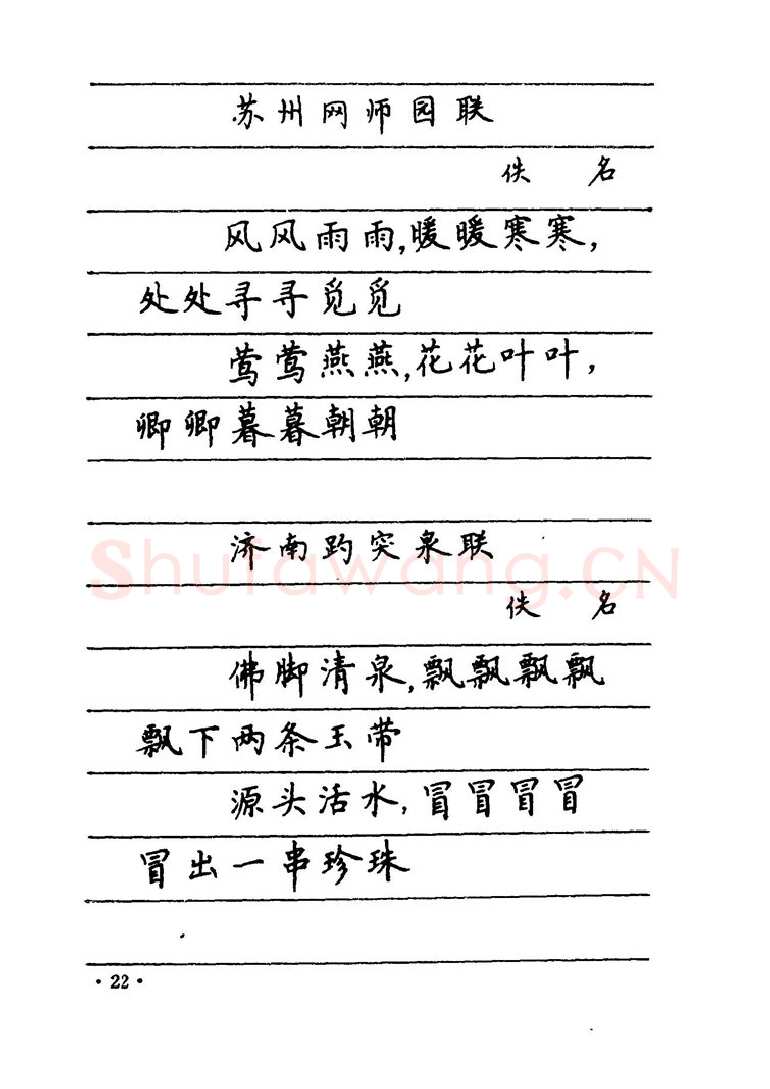 苏州网师园联
佚 名
风风雨雨,暖暖寒寒,
处处寻寻觅觅
莺莺燕燕,花花叶叶,
卿卿暮暮朝朝
济南趵突泉联
Shufawang.CN
佚 名
佛脚清泉,飘飘飘飘
飘下两条玉带
源头活水,冒冒冒冒
冒出一串珍珠
·22·